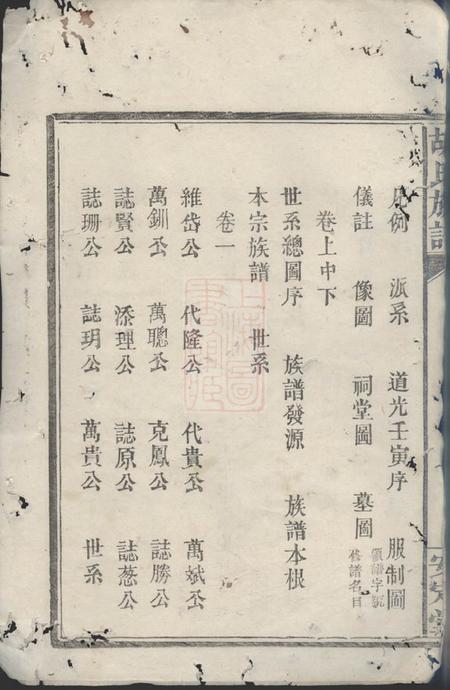 胡氏族譜
凡例 派系 道光壬寅序 服制圖
儀註 像圖 祠堂圖 墓圖 領譜字號 修譜名目
卷上中下
世系總圖序 族譜發源 族譜本根
本宗族譜 世系
卷一
維岱公 代隆公 代貴公 萬斌公
萬釧公 萬聰公 克鳳公 誌勝公
誌賢公 添理公 誌原公 誌葱公
誌珊公 誌玥公 萬貴公 世系
安定堂
上海圖書館藏